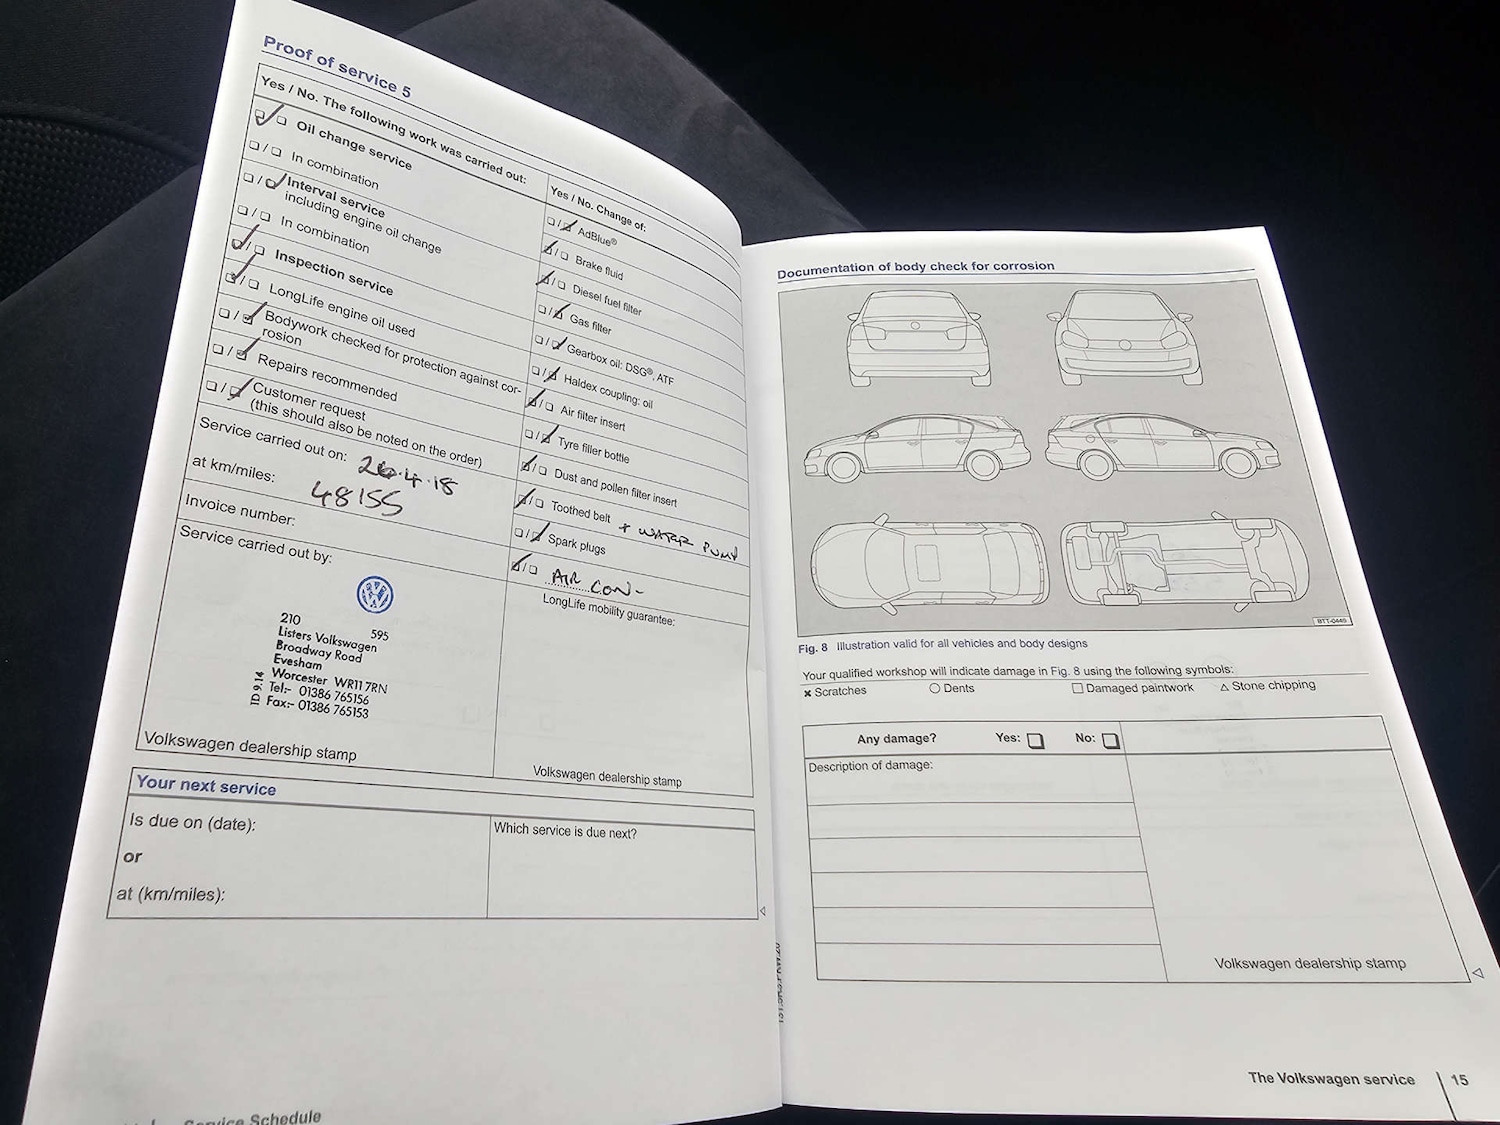 Proof of service 5
Yes / No. The following work was carried out:
Oil change service
In combination
Interval service
including engine oil change
In combination
Inspection service
LongLife engine oil used
Bodywork checked for protection against cor-
rosion
Repairs recommended
Customer request
(this should also be noted on the order)
Service carried out on: 26.4.18
at km/miles: 48155
Invoice number:
Service carried out by:
210 595
Listers Volkswagen
Broadway Road
Evesham
Worcester WR11 7RN
Tel:- 01386 765156
Fax:- 01386 765153
TD 9.14
Volkswagen dealership stamp
Yes / No. Change of:
AdBlue®
Brake fluid
Diesel fuel filter
Gas filter
Gearbox oil: DSG®, ATF
Haldex coupling: oil
Air filter insert
Tyre filler bottle
Dust and pollen filter insert
Toothed belt + WATER PUMP
Spark plugs
AIR CON-
LongLife mobility guarantee:
Volkswagen dealership stamp
Your next service
Is due on (date):
or
at (km/miles):
Which service is due next?
Service Schedule
Documentation of body check for corrosion
BTT-0449
Fig. 8 Illustration valid for all vehicles and body designs
Your qualified workshop will indicate damage in Fig. 8 using the following symbols:
Scratches Dents Damaged paintwork Stone chipping
Any damage? Yes: No:
Description of damage:
Volkswagen dealership stamp
The Volkswagen service 15